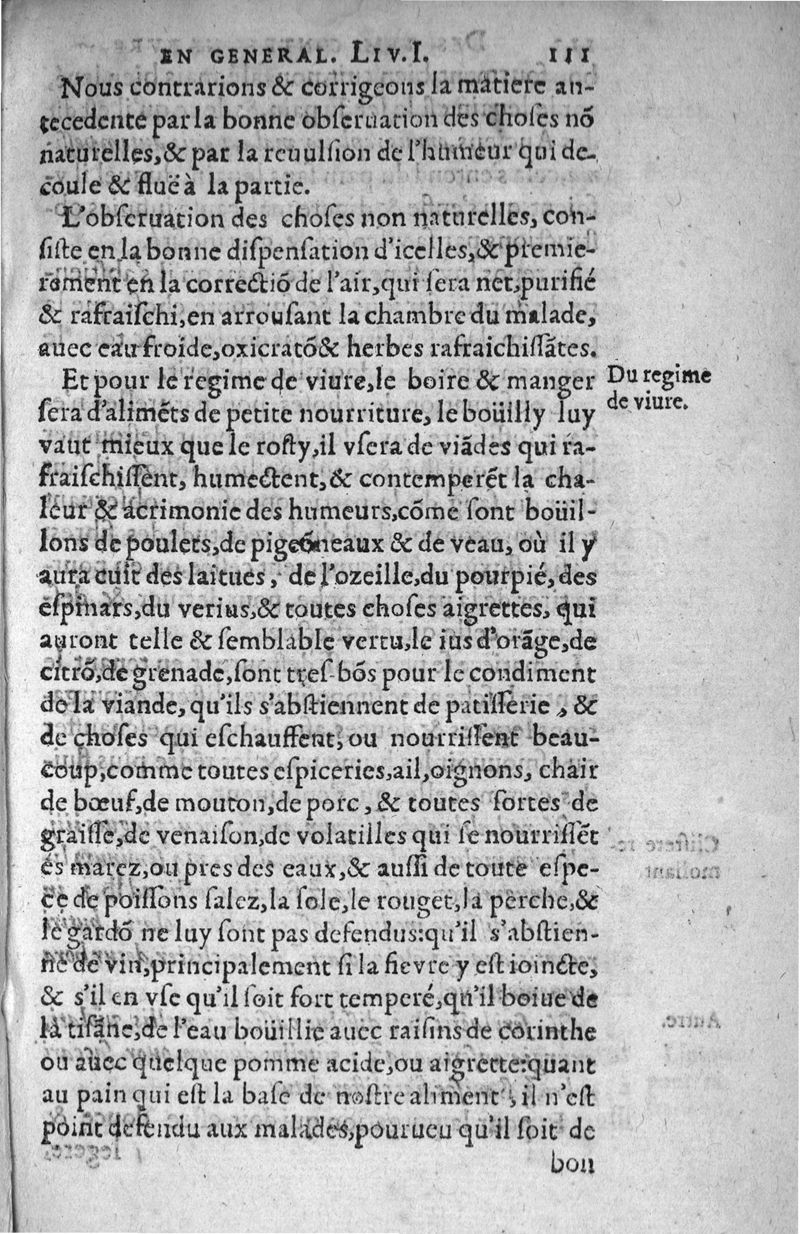 EN GENERAL. LIV. I. 111
Nous contrarions & corrigeons la matiere an-
tecedente par la bonne obſeruation des choſes nõ
naturelles, & par la reuulſion de l'humeur qui de-
coule & fluë à la partie.
L'obſeruation des choſes non naturelles, con-
ſiſte en la bonne diſpenſation d'icelles, & premie-
rement en la correctiõ de l'air, qui ſera net, purifié
& rafraiſchi, en arrouſant la chambre du malade,
auec eau froide, oxicratõ & herbes rafraichiſſãtes.
Et pour le regime de viure, le boire & manger
ſera d'alimẽts de petite nourriture, le boüilly luy
vaut mieux que le roſty, il vſera de viãdes qui ra-
fraiſchiſſent, humectent, & contemperẽt la cha-
leur & acrimonie des humeurs, cõme ſont boüil-
lons de poulets, de pigeonneaux & de veau, où il y
aura cuit des laitues, de l'ozeille, du pourpié, des
eſpinars, du verius, & toutes choſes aigrettes, qui
auront telle & ſemblable vertu, le ius d'orãge, de
citrõ, de grenade, ſont treſ-bõs pour le condiment
de la viande, qu'ils s'abſtiennent de patiſſerie, &
de choſes qui eſchauffent, ou nourriſſent beau-
coup, comme toutes eſpiceries, ail, oignons, chair
de bœuf, de mouton, de porc, & toutes ſortes de
graiſſe, de venaiſon, de volatilles qui ſe nourriſſẽt
és marez, ou pres des eaux, & auſſi de toute eſpe-
ce de poiſſons ſalez, la ſole, le rouget, la perche, &
le gardõ ne luy ſont pas defendus: qu'il s'abſtien-
ne de vin, principalement ſi la fievre y eſt ioincte,
& s'il en vſe qu'il ſoit fort temperé, qu'il boiue de
la tiſane, de l'eau boüillie auec raiſins de corinthe
ou auec quelque pomme acide, ou aigrette: quant
au pain qui eſt la baſe de noſtre aliment, il n'eſt
point defendu aux malades, pourueu qu'il ſoit de
bon
Du regime
de viure.